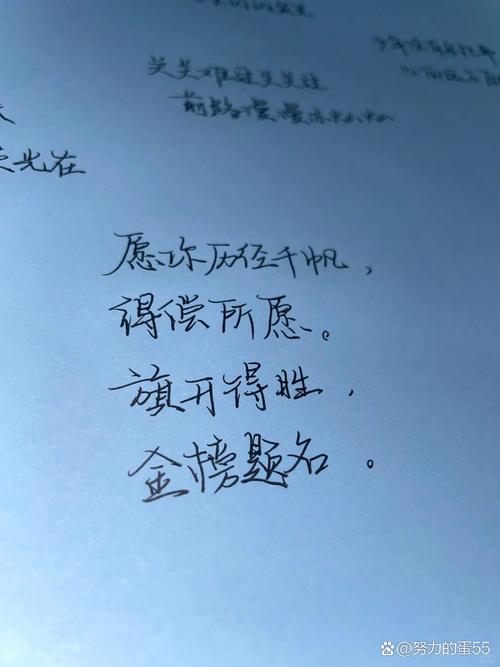 关关难过关关过
前路漫漫亦灿灿
光在
愿你历经千帆，
得偿所愿。
旗开得胜，
金榜题名。
努力的蛋55